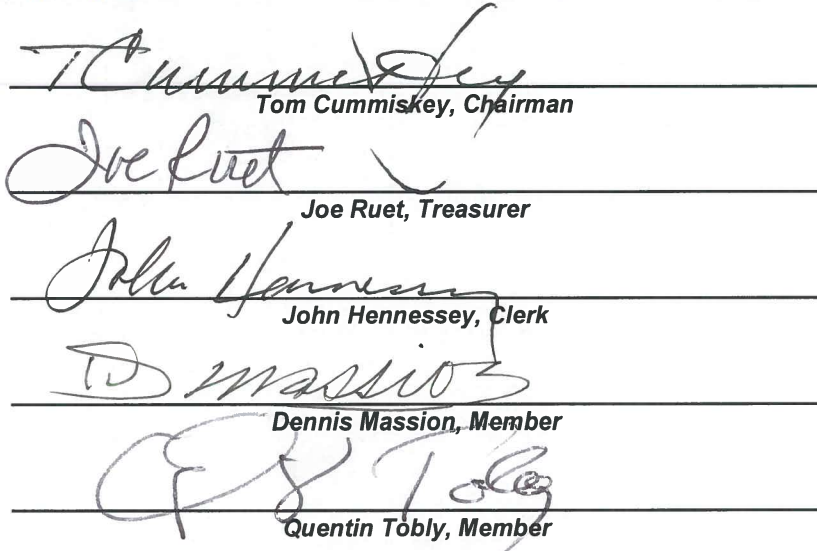 T Cummiskey
Tom Cummiskey, Chairman
Joe Ruet
Joe Ruet, Treasurer
John Hennessy
John Hennessey, Clerk
D Massion
Dennis Massion, Member
Tobly
Quentin Tobly, Member